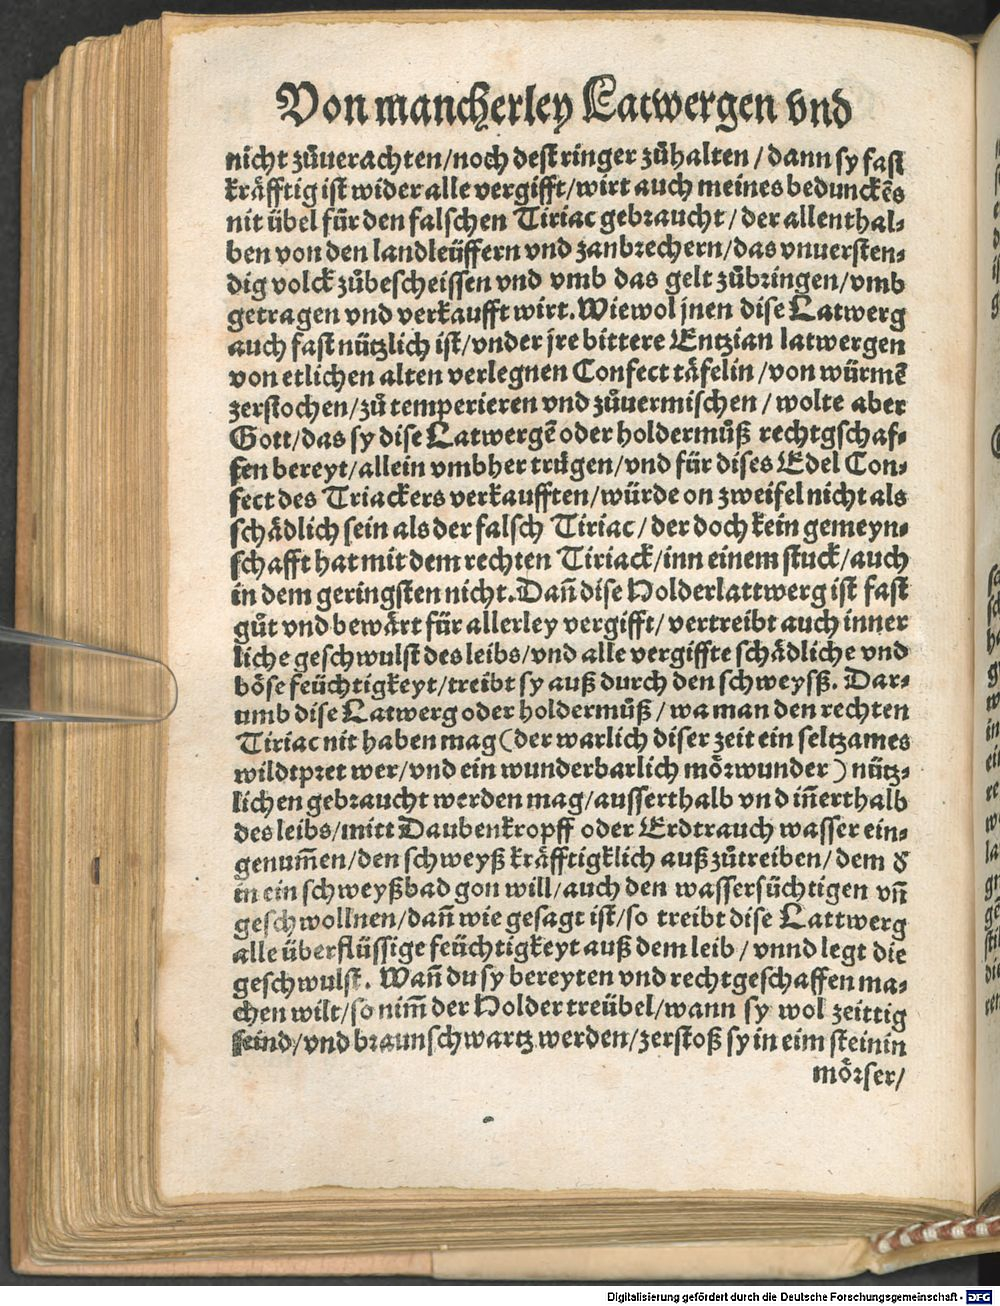 Von mancherley Latwergen vnd
nicht zůuerachten/noch dest ringer zůhalten/dann sy fast
kräfftig ist wider alle vergifft/wirt auch meines bedunckēs
nit übel für den falschen Tiriac gebraucht/der allenthal⸗
ben von den landleüffern vnd zanbrechern/das vnuersten⸗
dig volck zůbescheissen vnd vmb das gelt zůbringen/vmb
getragen vnd verkaufft wirt. Wiewol jnen dise Latwerg
auch fast nützlich ist/vnder jre bittere Entzian latwergen
von etlichen alten verlegnen Confect täfelin/von würmē
zerstochen/zů temperieren vnd zůuermischen/wolte aber
Gott/das sy dise Latwergē oder holdermůß rechtgschaf⸗
fen bereyt/allein vmbher trügen/vnd für dises Edel Con⸗
fect des Triackers verkaufften/würde on zweifel nicht als
schädlich sein als der falsch Tiriac/der doch kein gemeyn⸗
schafft hat mit dem rechten Tiriack/inn einem stuck/auch
in dem geringsten nicht. Dan̄ dise Holderlattwerg ist fast
gůt vnd bewärt für allerley vergifft/vertreibt auch inner
liche geschwulst des leibs/vnd alle vergiffte schädliche vnd
böse feüchtigkeyt/treibt sy auß durch den schweysß. Dar⸗
umb dise Latwerg oder holdermůß/wa man den rechten
Tiriac nit haben mag (der warlich diser zeit ein seltzames
wildtpret wer/vnd ein wunderbarlich mörwunder) nütz⸗
lichen gebraucht werden mag/ausserthalb vnd in̄erthalb
des leibs/mitt Daubenkropff oder Erdtrauch wasser ein⸗
genum̄en/den schweyß kräfftigklich auß zůtreiben/dem ꝺ
in ein schweyßbad gon will/auch den wassersüchtigen vn̄
geschwollnen/dan̄ wie gesagt ist/so treibt dise Lattwerg
alle überflüssige feüchtigkeyt auß dem leib/vnnd legt die
geschwulst. Wan̄ du sy bereyten vnd rechtgeschaffen ma⸗
chen wilt/so nim̄ der Holder treübel/wann sy wol zeittig
seind/vnd braunschwartz werden/zerstoß sy in eim steinin
mörser/
Digitalisierung gefördert durch die Deutsche Forschungsgemeinschaft - DFG